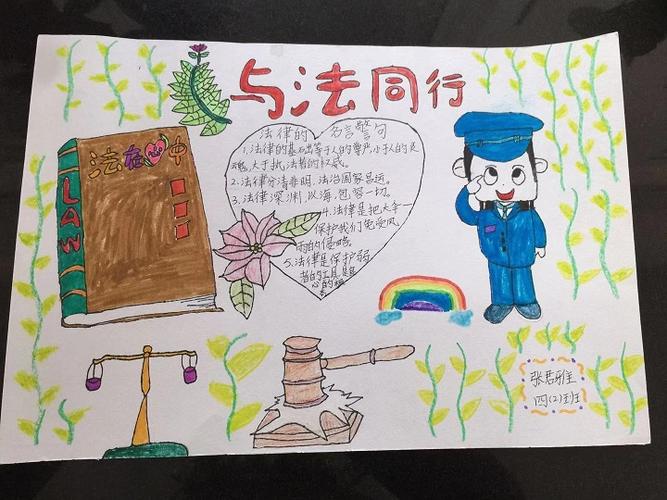 与法同行
法在心中
LAW
法律的 名言警句
1.法律的基础等于人的尊严,小于人的灵
魂,大于执法者的权威。
2.法律分清非明,法治国家昌运。
3.法律深渊,以海,包容一切。
4.法律是把大伞一
保护我们免受风
雨的侵略
5.法律是保护弱
者的工具是
心的
张君雅
四(2)班